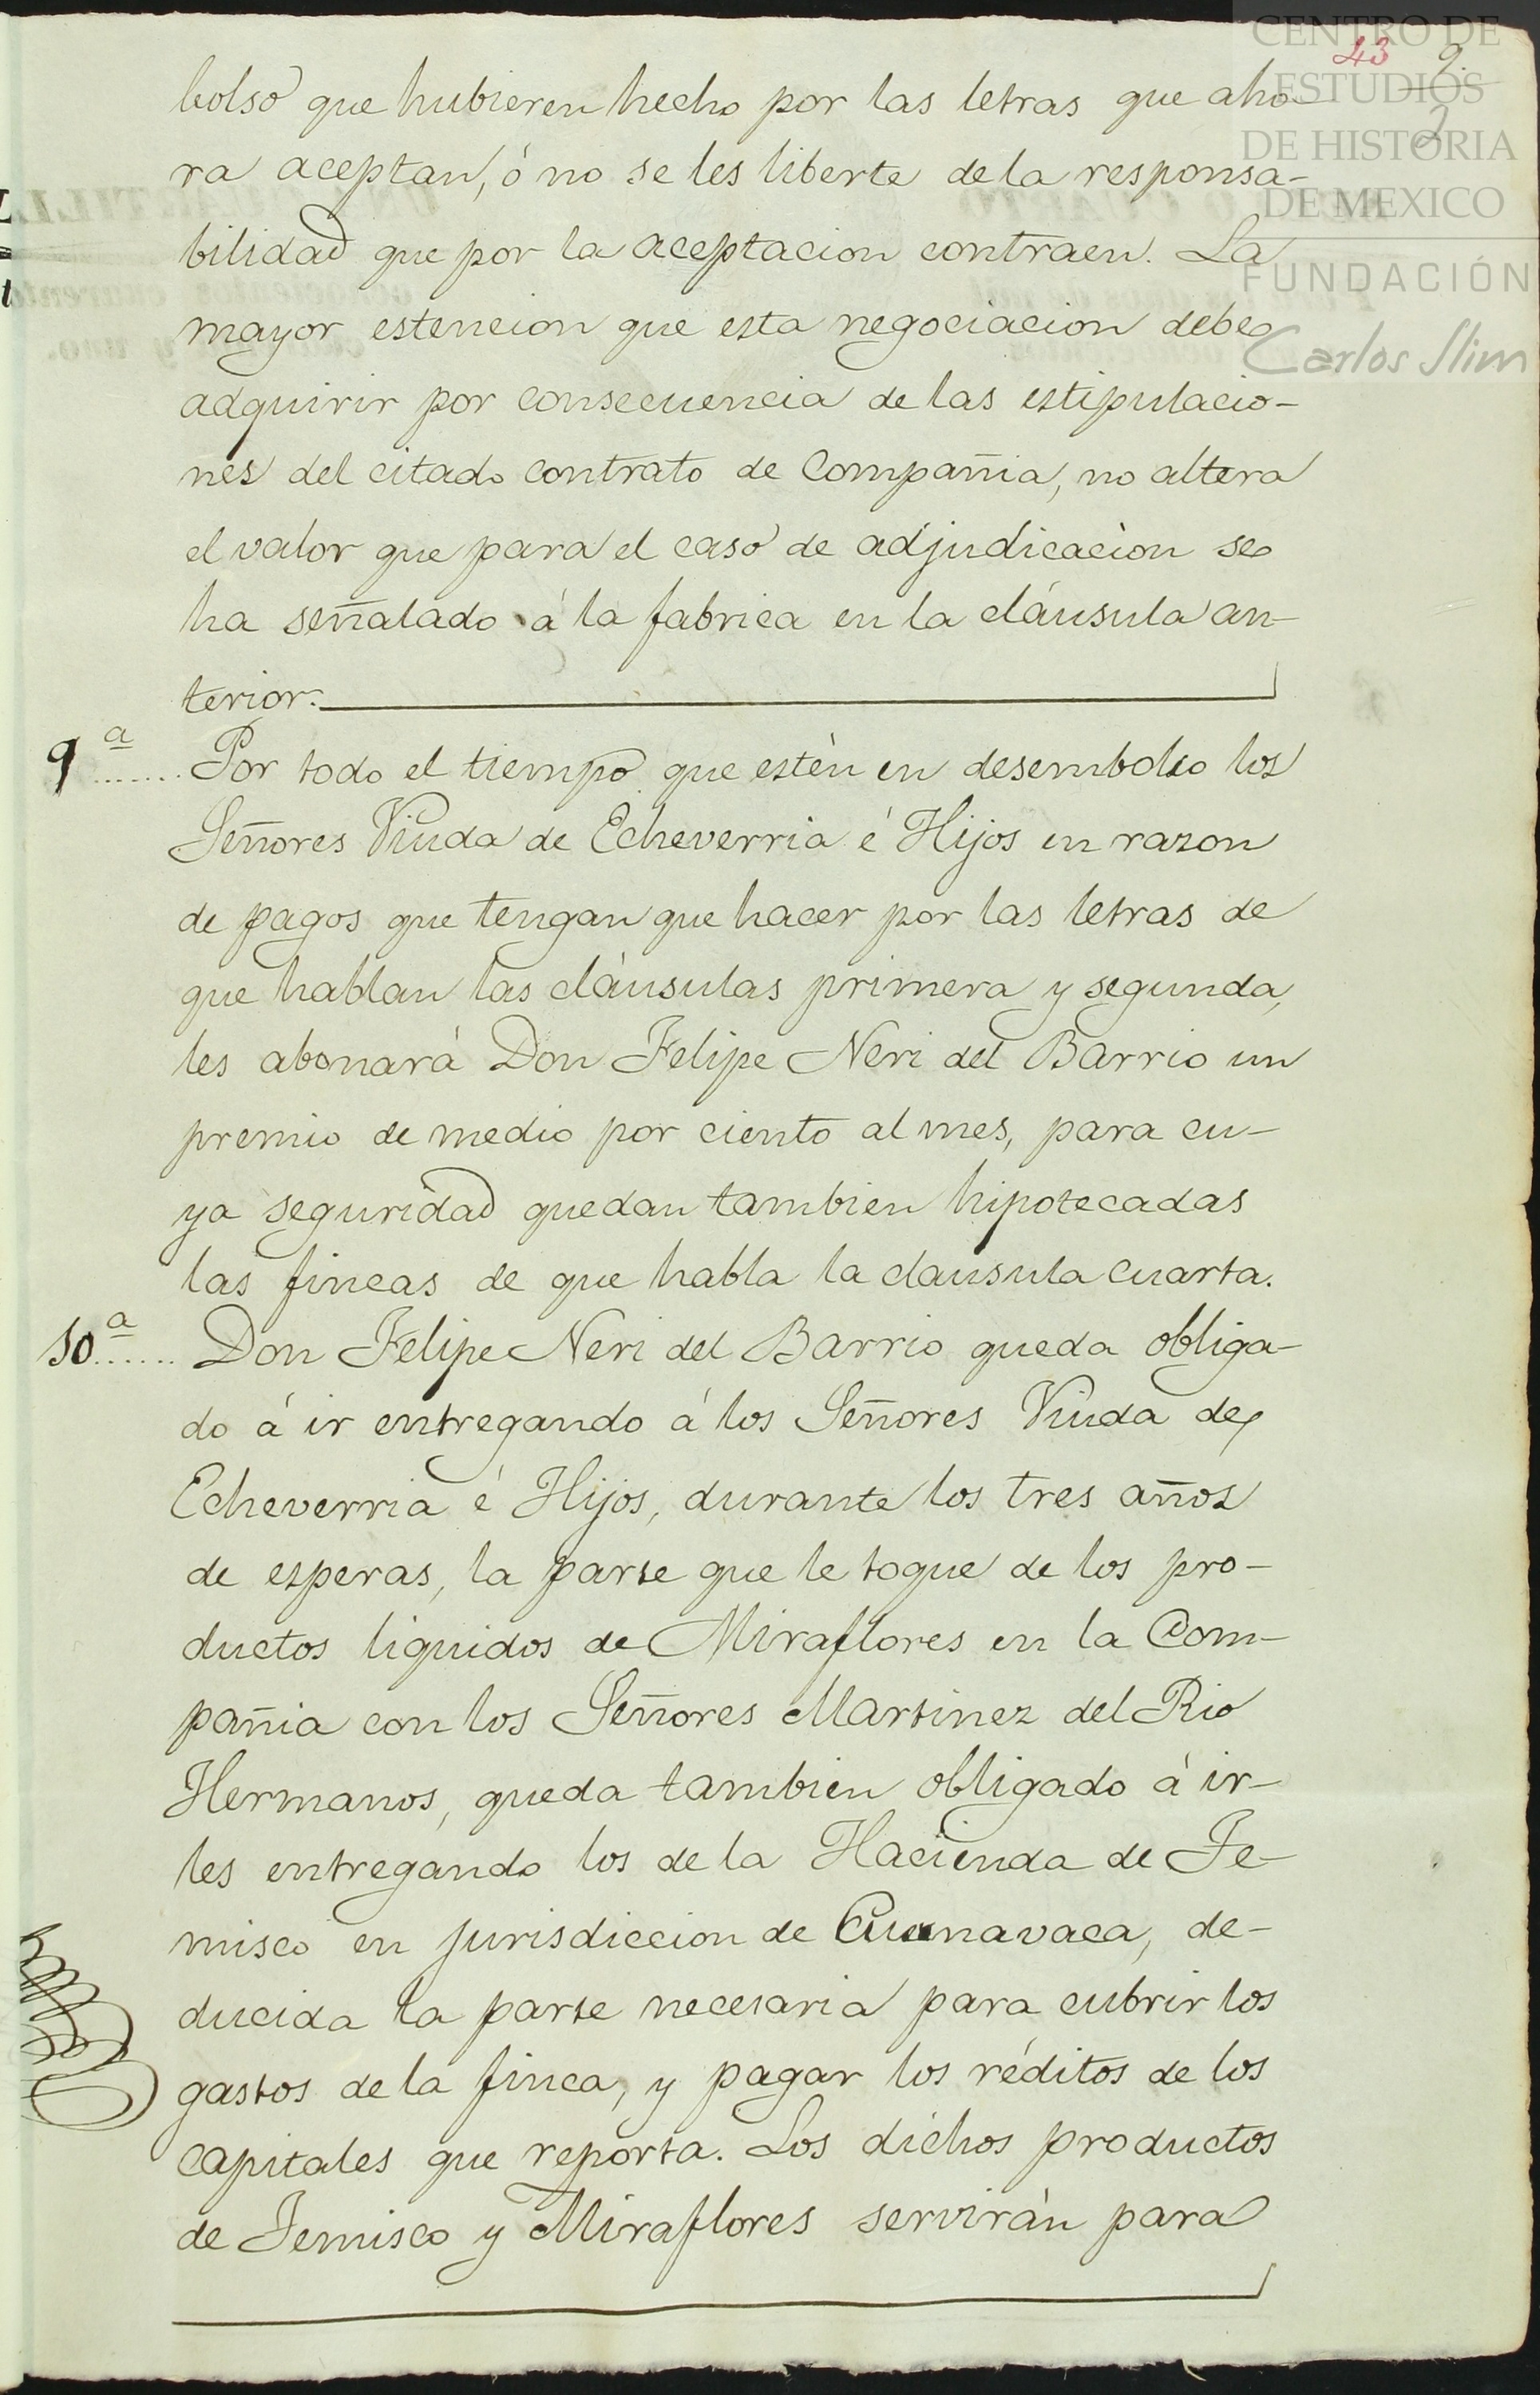 CENTRO DE
ESTUDIOS
DE HISTORIA
DE MEXICO
FUNDACIÓN
Carlos Slim
43
9.
2
bolso que hubieren hecho por las letras que aho-
ra aceptan, ó no se les liberte de la responsa-
bilidad que por la aceptacion contraen. La
mayor estencion que esta negociacion debe
adquirir por consecuencia de las estipulacio-
nes del citado contrato de Compañia, no altera
el valor que para el caso de adjudicacion se
ha señalado á la fabrica en la cláusula an-
terior.
9ª ....... Por todo el tiempo que estén en desembolso los
Señores Viuda de Echeverria é Hijos en razon
de pagos que tengan que hacer por las letras de
que hablan las cláusulas primera y segunda,
les abonará Don Felipe Neri del Barrio un
premio de medio por ciento al mes, para cu-
ya seguridad quedan tambien hipotecadas
las fincas de que habla la clausula cuarta.
10ª ...... Don Felipe Neri del Barrio queda obliga-
do á ir entregando á los Señores Viuda de
Echeverria é Hijos, durante los tres años
de esperas, la parte que le toque de los pro-
ductos liquidos de Miraflores en la Com-
pañia con los Señores Martinez del Rio
Hermanos, queda tambien obligado á ir-
les entregando los de la Hacienda de Te-
misco en jurisdiccion de Cuernavaca, de-
ducida la parte necesaria para cubrir los
gastos de la finca, y pagar los réditos de los
capitales que reporta. Los dichos productos
de Temisco y Miraflores servirán para